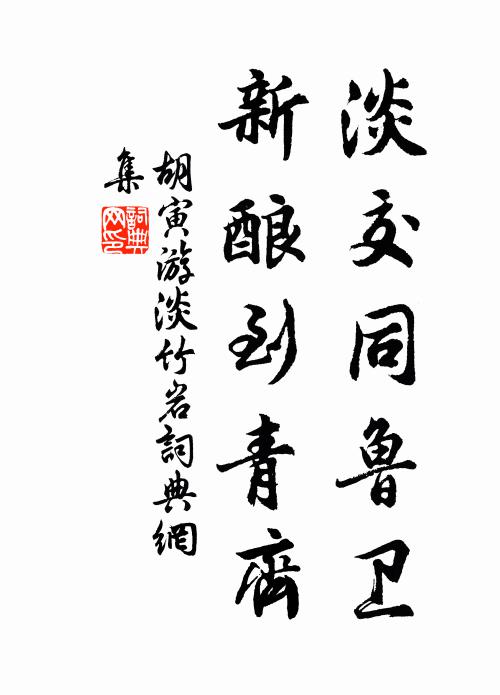 淡交同鲁卫
新酿到青齊
胡寅游淡竹岩詞典網
集
詞典
网印